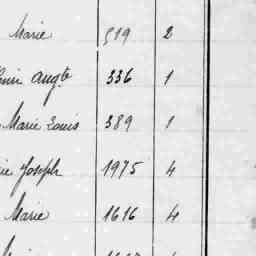 Marie 519 2
Augte 336 1
Marie Louis 389 1
Joseph 1975 4
Marie 1616 4